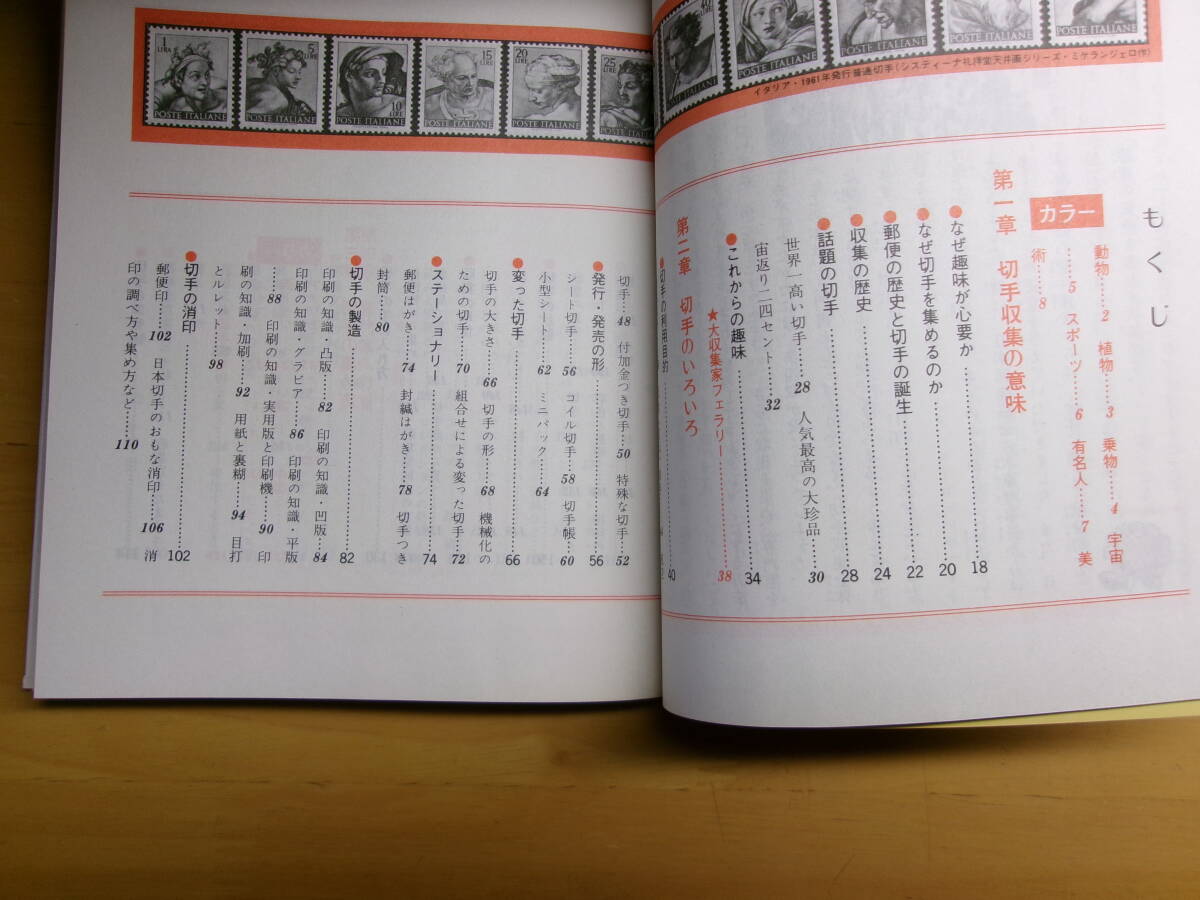 イタリア・1961年発行普通切手(システィーナ礼拝堂天井画シリーズ・ミケランジェロ作)
もくじ
カラー
動物……2 植物……3 乗物……4 宇宙
……5 スポーツ……6 有名人……7 美
術……8
第一章 切手収集の意味
●なぜ趣味が心要か……18
●なぜ切手を集めるのか……20
●郵便の歴史と切手の誕生……22
●収集の歴史……24
●話題の切手……28
世界一高い切手……28 人気最高の大珍品……30
宙返り二四セント……32
●これからの趣味……34
★大収集家フェラリー……38
第二章 切手のいろいろ
●切手の利用目的……40
切手…48 付加金つき切手…50 特殊な切手…52
●発行・発売の形……56
シート切手……56 コイル切手……58 切手帳……60
小型シート……62 ミニパック……64
●変った切手……66
切手の大きさ……66 切手の形……68 機械化の
ための切手……70 組合せによる変った切手…72
●ステーショナリー……74
郵便はがき……74 封緘はがき……78 切手つき
封筒……80
●切手の製造……82
印刷の知識・凸版……82 印刷の知識・凹版……84
印刷の知識・グラビア……86 印刷の知識・平版
……88 印刷の知識・実用版と印刷機……90 印
刷の知識・加刷……92 用紙と裏糊……94 目打
とルレット……98
●切手の消印……102
郵便印……102 日本切手のおもな消印……106 消
印の調べ方や集め方など……110
1 LIRA POSTE ITALIANE
5 POSTE ITALIANE
10 LIRE POSTE ITALIANE
15 LIRE POSTE ITALIANE
20 LIRE POSTE ITALIANE
25 LIRE POSTE ITALIANE